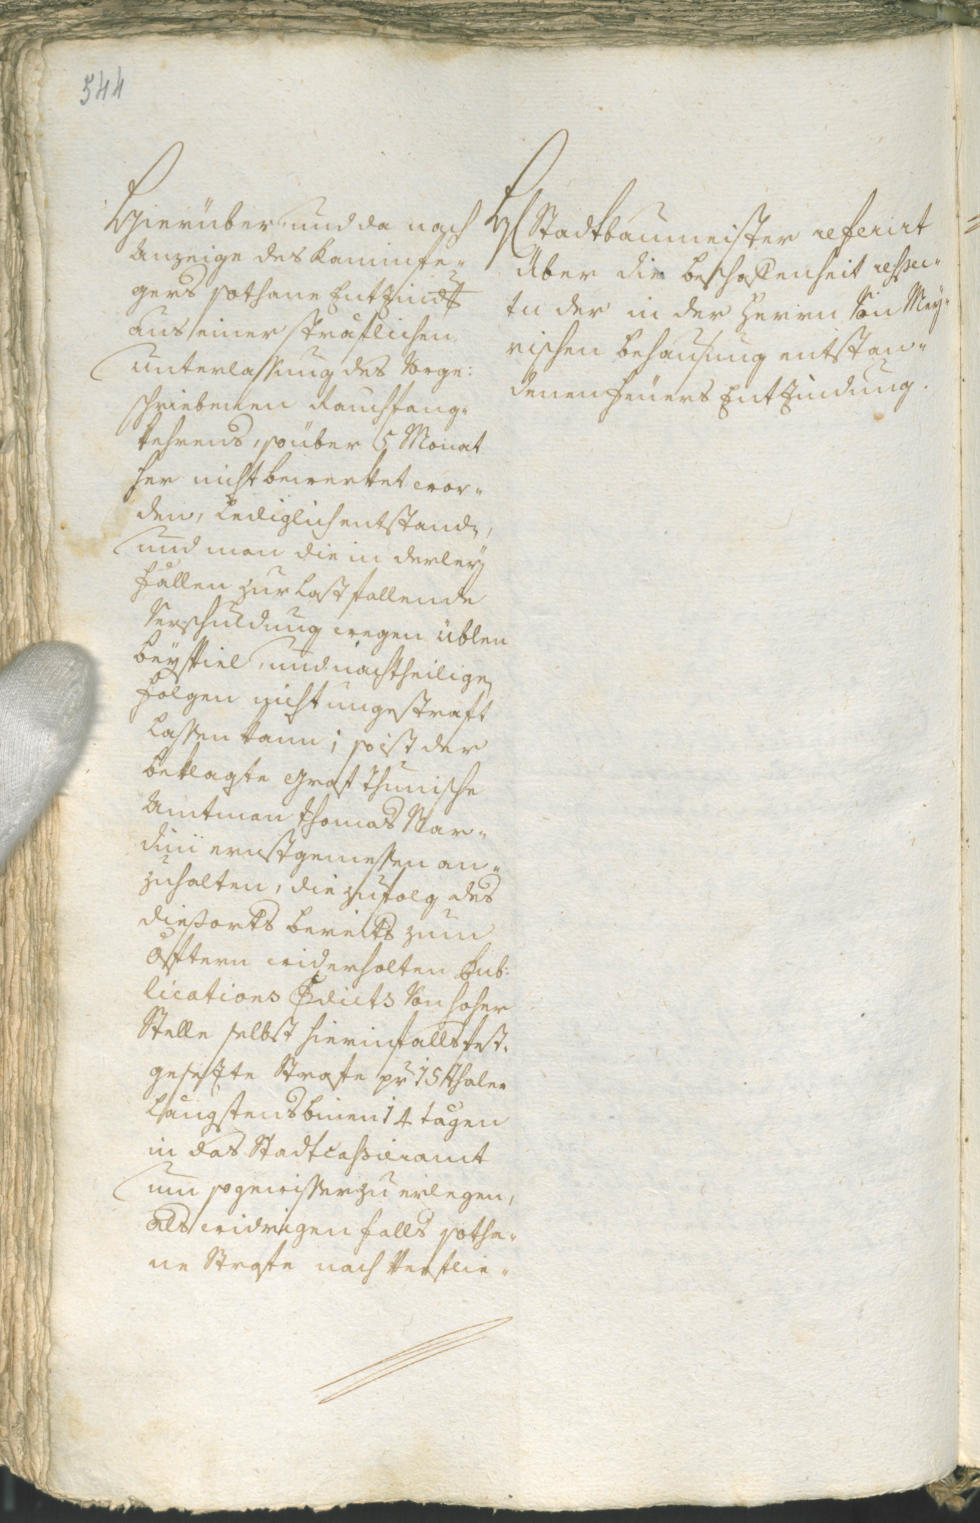 544
Hierüber, und da nach
Anzeige des Kaminfe-
gers sothane Entzindg
aus einer sträflichen
unterlassung des vorge:
schriebenen Rauchfang-
kehrens, so über 5 Monat
her nicht bewerket wor-
den, lediglich entstand,
und man die in derley
fällen zur last fallende
Verschuldung wegen üblen
beyspiel, und nachtheilige
folgen nicht ungestraft
lassen kann; so ist der
beklagte Graf Thunische
Amtman Thomas Mar-
dini ernstgemessen an-
zuhalten, die zufolg des
diesorts bereits zum
öftern widerholten Pub:
lications Edicts von hoher
Stelle selbst hierinfalls fest-
gesezte Strafe pr 15 Thaler
längstens binen 14 tägen
in das Stadtcassieramt
um so gewisser zu erlegen,
als widrigen falls sotha-
ne Strafe nach Verflie-
H Stadtbaumeister referirt
über die beschaffenheit respec-
tu der in der Herrn von May-
rischen behausung entstan-
denen feüers Entzindung.